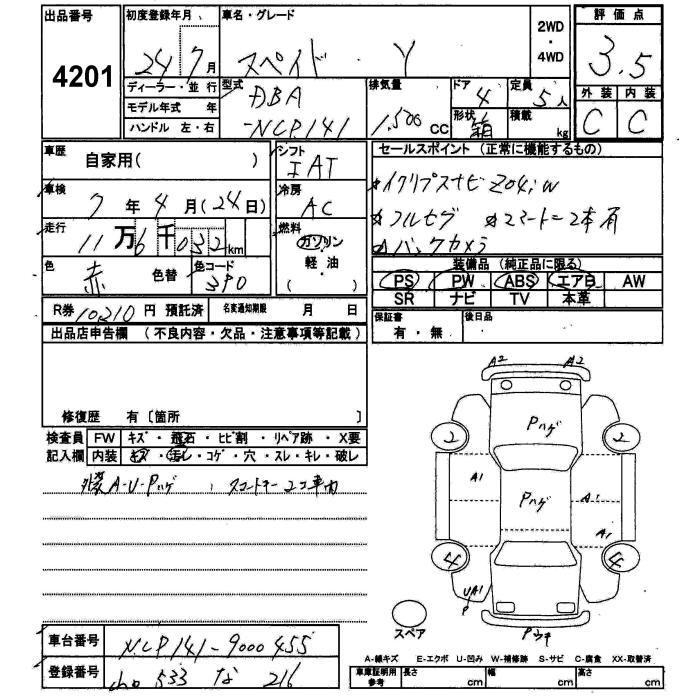 出品番号
4201
初度登録年月
24 7月
車名・グレード
スペイド ・ Y
2WD
・
4WD
評価点
3.5
ディーラー・並行
モデル年式 年
ハンドル 左・右
型式
DBA
-NCP141
排気量
1,500 CC
ドア
4
形状
箱
定員
5人
積載
kg
外装 内装
C C
車歴
自家用( )
シフト
IAT
セールスポイント (正常に機能するもの)
イクリプスナビZ04iw
フルセグ スマートキー2本有
バックカメラ
車検
7年4月(24日)
冷房
AC
走行
11万6千032km
燃料
ガソリン
・
軽油
( )
色
赤 色替
色コード
3P0
装備品 (純正品に限る)
PS PW ABS エア自 AW
SR ナビ TV 本革
R券 10210円 預託済
名変通知期限 月 日
保証書
有・無
後日品
出品店申告欄 (不良内容・欠品・注意事項等記載)
修復歴 有〔箇所 〕
検査員 FW キズ・飛石・ヒビ割・リペア跡・X要
記入欄 内装 キズ・汚レ・コゲ・穴・スレ・キレ・破レ
外装A-U-Pハゲ
A2 A2
Pハゲ
2 2
A1
Pハゲ
A1
A1
4 4
UA1
P
スペア
Pウキ
車台番号 NCP141-9000455
登録番号 533 な 216
A-線キズ E-エクボ U-凹み W-補修跡 S-サビ C-腐食 XX-取替済
車庫証明用参考 長さ cm 幅 cm 高さ cm